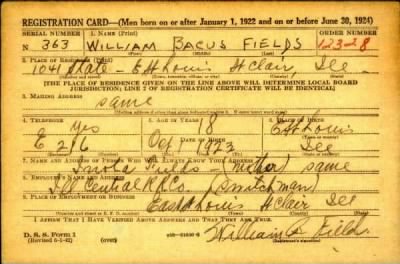 REGISTRATION CARD—(Men born on or after January 1, 1922 and on or before June 30, 1924)
SERIAL NUMBER 1. NAME (Print) ORDER NUMBER
N 363 WILLIAM BACUS FIELDS 12328
(First) (Middle) (Last)
2. PLACE OF RESIDENCE (Print)
1041 State - E St Louis St Clair Ill
[THE PLACE OF RESIDENCE GIVEN ON THE LINE ABOVE WILL DETERMINE LOCAL BOARD
JURISDICTION; LINE 2 OF REGISTRATION CERTIFICATE WILL BE IDENTICAL]
3. MAILING ADDRESS
same
4. TELEPHONE 5. AGE IN YEARS 6. PLACE OF BIRTH
Yes 18 E St Louis
E 216 Oct 1923 Ill
7. NAME AND ADDRESS OF PERSON WHO WILL ALWAYS KNOW YOUR ADDRESS
Fields (Mother) same
8. EMPLOYER'S NAME AND ADDRESS
Ill Central R R Co. (Switchman)
9. PLACE OF EMPLOYMENT OR BUSINESS
East St Louis St Clair Ill
I AFFIRM THAT I HAVE VERIFIED ABOVE ANSWERS AND THAT THEY ARE TRUE.
D. S. S. Form 1
(Revised 6-1-42) (over)
William B Fields
(Registrant's signature)